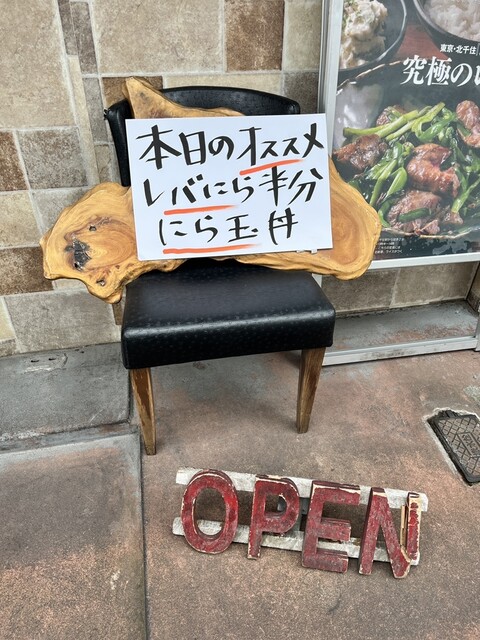 東京・北千住
究極のレ
本日のオススメ
レバにら半分
にら玉丼
OPEN